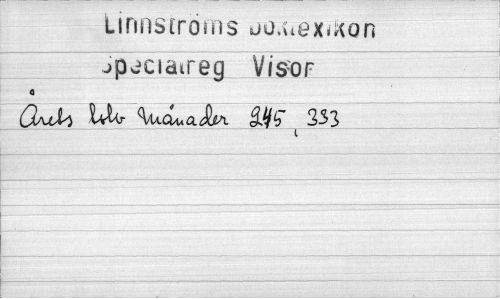 Linnströms boklexikon
Specialreg Visor
Årets tolv månader 245, 333